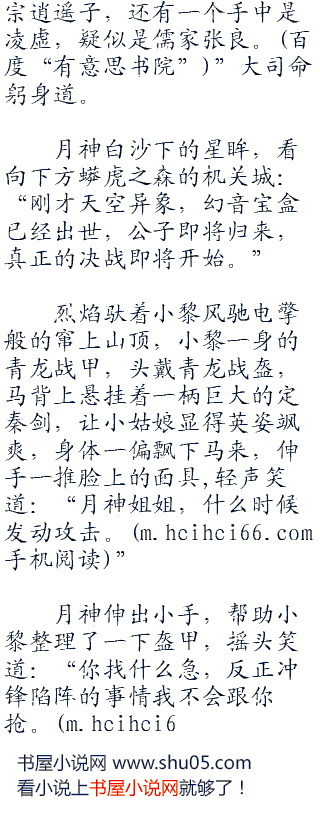 宗逍遥子，还有一个手中是
凌虚，疑似是儒家张良。(百
度“有意思书院”)”大司命
躬身道。
月神白沙下的星眸，看
向下方蟒虎之森的机关城：
“刚才天空异象，幻音宝盒
已经出世，公子即将归来，
真正的决战即将开始。”
烈焰驮着小黎风驰电掣
般的窜上山顶，小黎一身的
青龙战甲，头戴青龙战盔，
马背上悬挂着一柄巨大的定
秦剑，让小姑娘显得英姿飒
爽，身体一偏飘下马来，伸
手一推脸上的面具,轻声笑
道：“月神姐姐，什么时候
发动攻击。(m.hcihci66.com
手机阅读)”
月神伸出小手，帮助小
黎整理了一下盔甲，摇头笑
道：“你找什么急，反正冲
锋陷阵的事情我不会跟你
抢。(m.hcihci6
书屋小说网 www.shu05.com
看小说上书屋小说网就够了！